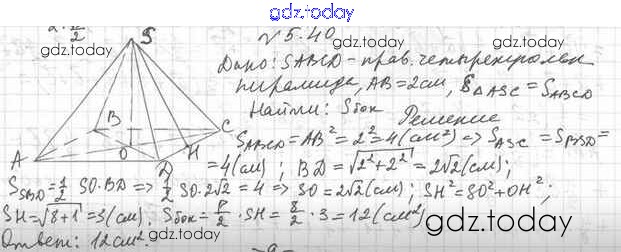 gdz.today
2·√2/2
S
№ 5.40
gdz.today
Дано: SABCD – прав. четырехугольн.
пирамида, AB = 2см, S△ASC = SABCD
gdz.today
Найти: Sбок
Решение
B
C
A
O
D
H
gdz.today
SABCD = AB² = 2² = 4(см²) => SASC = SBSD =
= 4(см) ; BD = √2²+2² = 2√2(см);
SSBD = 1/2 SO·BD => 1/2 SO·2√2 = 4 => SO = 2√2(см); SH² = SO² + OH²;
SH = √8+1 = 3(см). Sбок = P/2 · SH = 8/2 · 3 = 12(см²)
Ответ: 12см²
gdz.today
gdz.today